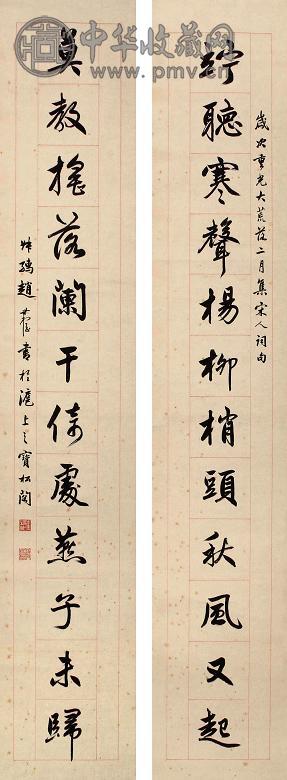 中华收藏网
www.pmv.cn
歲次重光大荒落二月集宋人詞句
竚聽寒聲楊柳梢頭秋風又起
莫教搖落闌干倚處燕子未歸
趙書於滬上之寶松閣